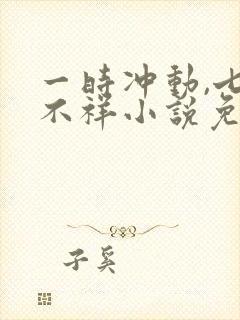 一時冲動,七
不祥小說免
子奚